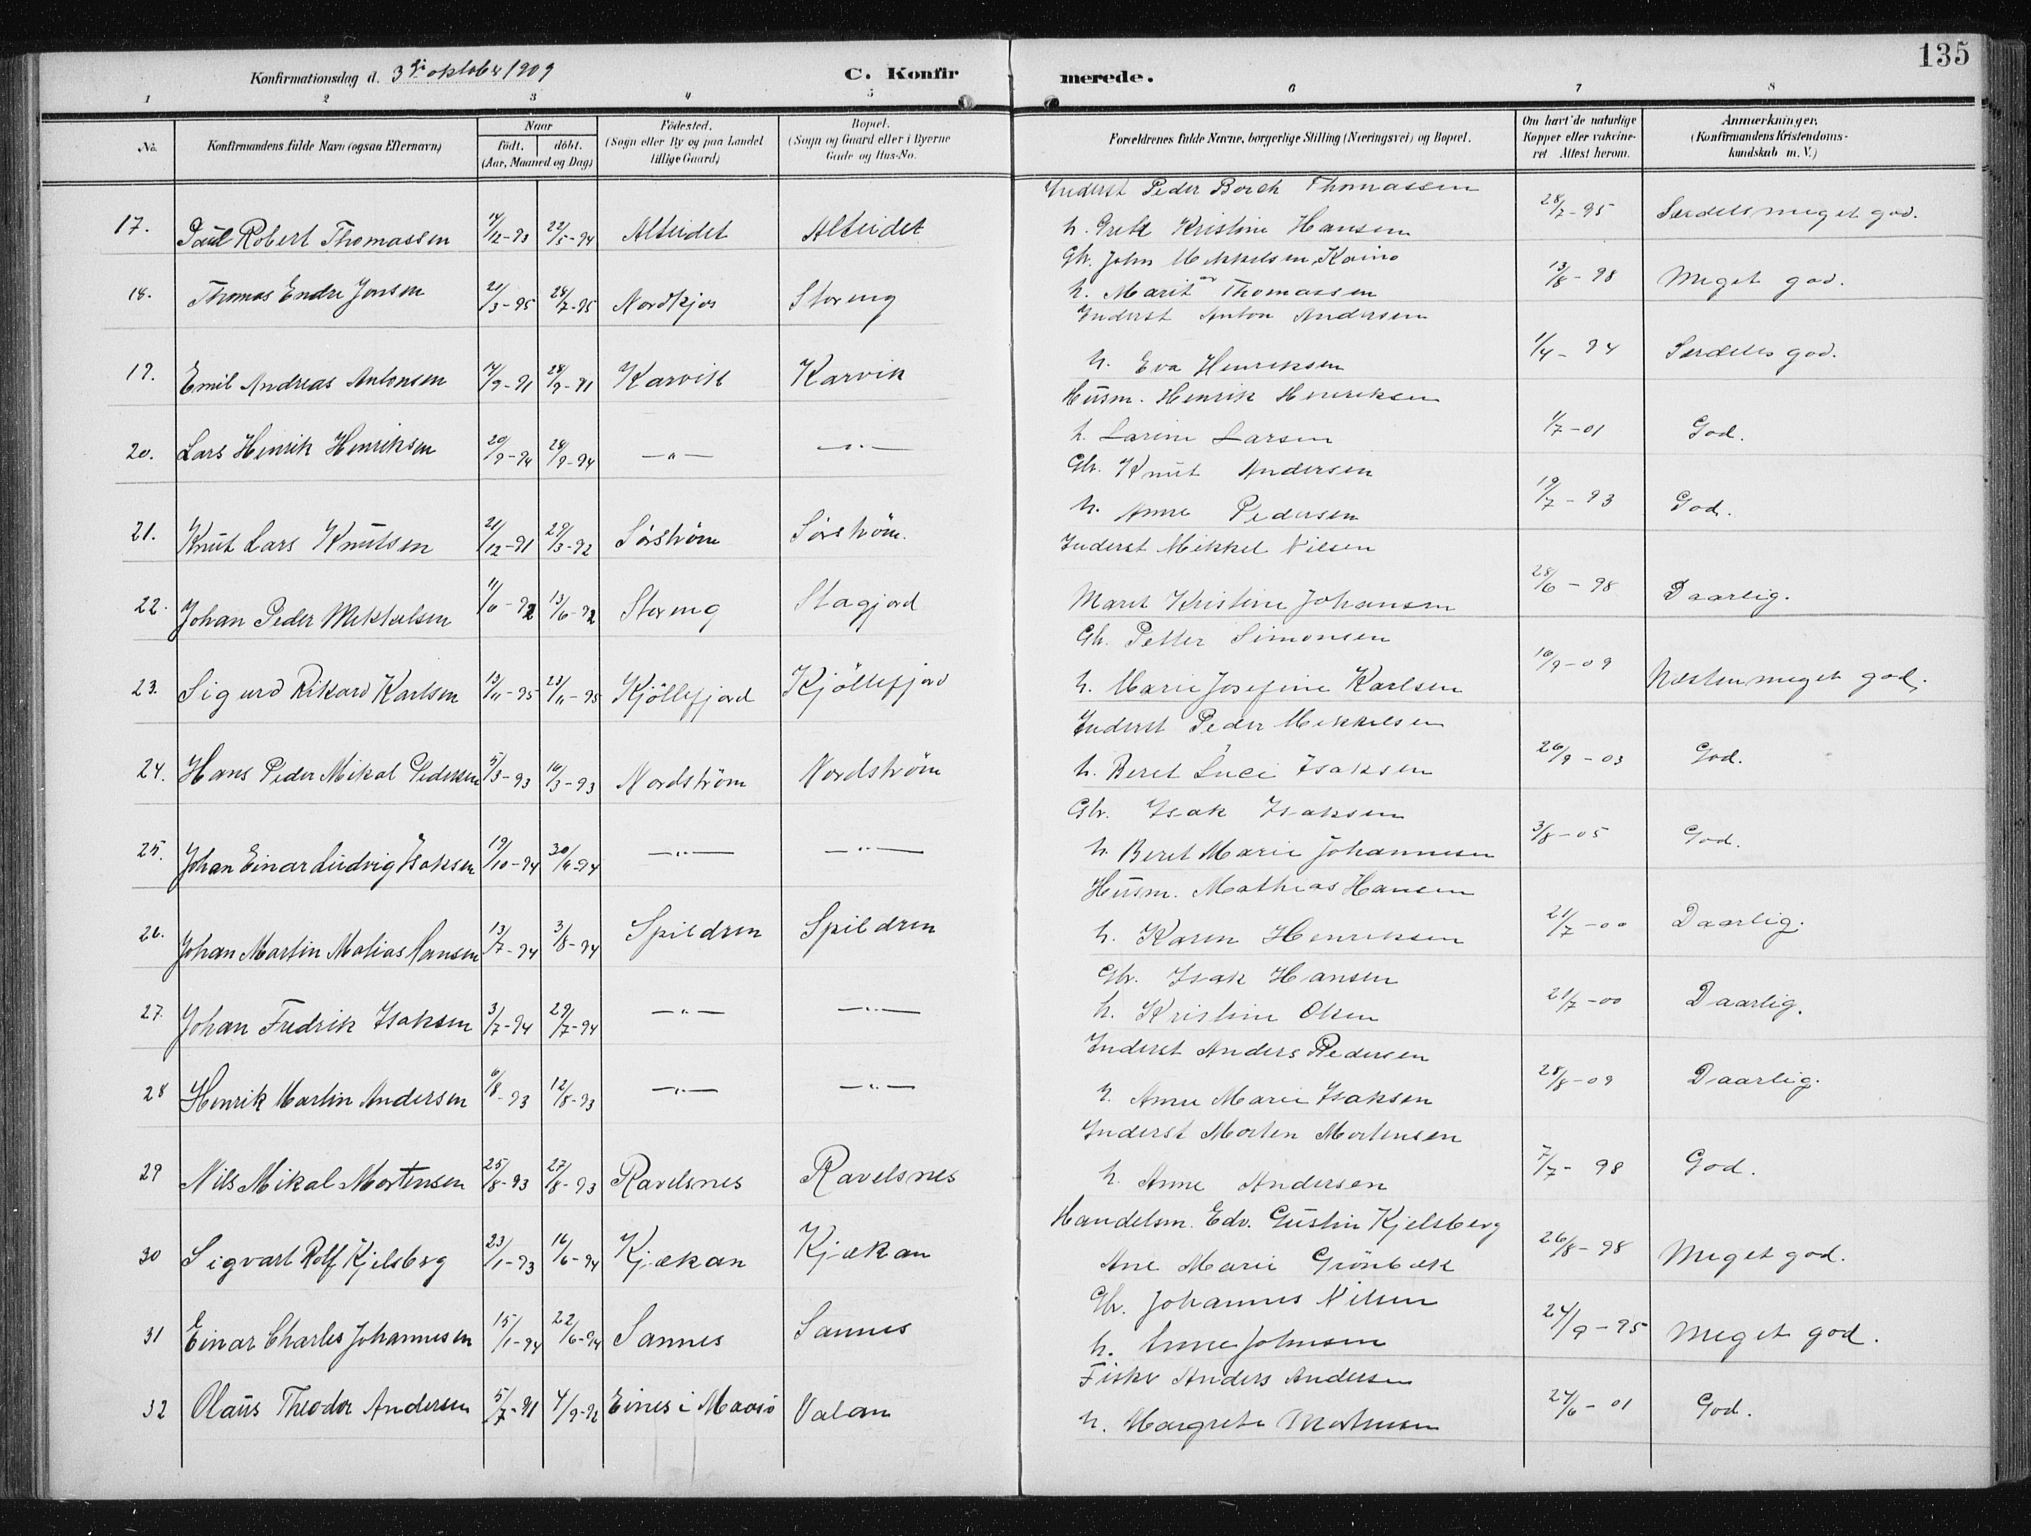 135
Konfirmationsdag d. 3die oktober 1909 C. Konfirmerede.
1 2 3 4 5 6 7 8
No. Konfirmandens fulde Navn (ogsaa Efternavn) Naar født. døbt. (Aar, Maaned og Dag) Fødested. (Sogn eller By og paa Landet tillige Gaard) Bopæl. (Sogn og Gaard eller i Byerne Gade og Hus-No. Forældrenes fulde Navne, borgerlige Stilling (Næringsvei) og Bopæl. Om havt de naturlige Kopper eller vakcineret Attest herom. Anmærkninger. (Konfirmandens Kristendomskundskab m. V.)
Inderst Peder Borch Thomassen
17. Paul Robert Thomassen 14/12-93 22/5-94 Alteidet Alteidet h. Grete Kristine Hansen 28/7-95 Særdeles meget god.
Gbr. John Mikkelsen Kaino
18. Thomas Endre Jonsen 21/3-95 28/7-95 Nordkjos Storeng h. Marit Thomassen 13/8-98 Meget god.
Inderst Anton Andersen
19. Emil Andreas Antonsen 14/9-91 28/9-91 Karvik Karvik h. Eva Henriksen 1/4-94 Særdeles god.
Husm. Henrik Henriksen
20. Lars Henrik Henriksen 20/9-94 28/9-94 —„— —„— h. Larine Larsen 1/7-01 God.
Gbr. Knut Andersen
21. Knut Lars Knutsen 21/12-91 29/3-92 Sørstrøm Sørstrøm. h. Anne Pedersen 19/7-93 God.
Inderst Mikkel Nilsen
22. Johan Peder Mikkelsen 11/6-92 13/6-92 Storeng Stagjord Maret Kristine Johansen 28/6-98 Daarlig.
Gbr. Petter Simonsen
23. Sigurd Rikard Karlsen 13/11-95 23/11-95 Kjöllefjord Kjöllefjord h. Marie Josefine Karlsen 16/9-09 Næsten meget god.
Inderst Peder Mikkelsen
24. Hans Peder Mikal Pedersen 5/3-93 16/3-93 Nordstrøm Nordstrøm h. Beret Luci Isaksen 26/9-03 God.
Gbr. Isak Isaksen
25. Johan Einar Ludvig Isaksen 19/10-94 30/11-94 —„— —„— h. Beret Marie Johannesen 3/8-05 God.
Husm. Mathias Hansen
26. Johan Martin Matias Hansen 13/7-94 3/8-94 Spildren Spildren h. Karen Henriksen 21/7-00 Daarlig.
Gbr. Isak Hansen
27. Johan Fredrik Isaksen 3/7-94 29/7-94 —„— —„— h. Kristine Olsen 21/7-00 Daarlig.
Inderst Anders Pedersen
28 Henrik Martin Andersen 6/8-93 12/8-93 —„— —„— h. Anne Marie Isaksen 28/8-09 Daarlig.
Inderst Morten Mortensen
29 Nils Mikal Mortensen 25/8-93 27/8-93 Ravelsnes Ravelsnes h. Anne Andersen 7/7-98 God.
Handelsm. Edv. Gustin Kjelsberg
30 Sigvart Rolf Kjelsberg 23/1-93 16/6-94 Kjækan Kjækan Ane Marie Grönbæk 26/8-98 Meget god.
Gbr. Johannes Nilsen
31 Einar Charles Johannesen 15/1-94 22/6-94 Sannes Sannes h. Anne Johnsen 24/9-95 Meget god.
Fisker Anders Andersen
32 Olaus Theodor Andersen 5/7-91 4/9-92 Eines i Maasø Valan h. Margrete Mortensen 24/6-01 God.